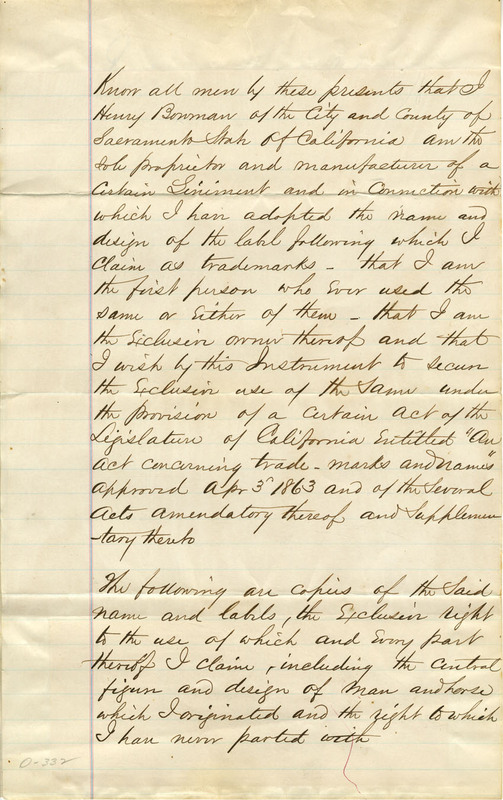 Know all men by these presents that I
Henry Bowman of the City and County of
Sacramento State of California am the
sole proprietor and manufacturer of a
Certain Liniment and in Connection with
which I have adopted the name and
design of the label following which I
Claim as trademarks - that I am
the first person who Ever used the
same or Either of them - that I am
the Exclusive owner thereof and that
I wish by this Instrument to secure
the Exclusive use of the Same under
the provision of a Certain Act of the
Legislature of California Entitled "An
act concerning trade-marks and names"
approved Apr 3d 1863 and of the Several
Acts amendatory thereof and Supplemen
-tary thereto
The following are copies of the Said
name and labels, the Exclusive right
to the use of which and Every part
thereof I claim, including the Central
figure and design of man and horse
which I originated and the right to which
I have never parted with
0-332